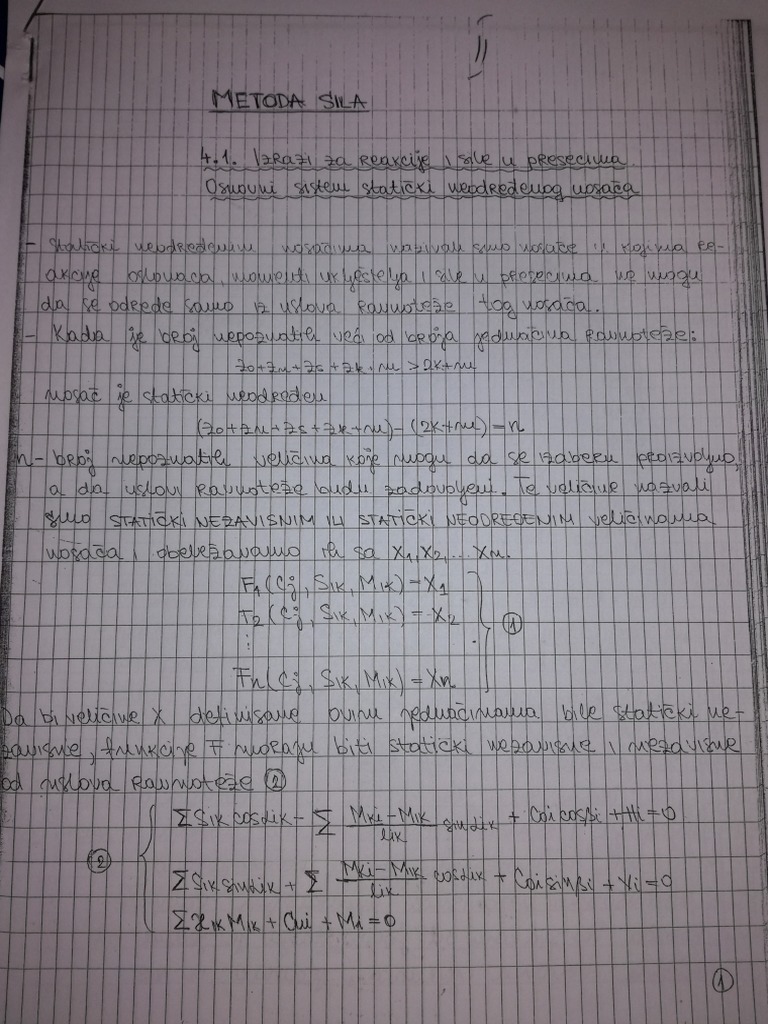 II
METODA SILA
4.1. Izrazi za reakcije i sile u presecima
Osnovni sistem statički neodređenog nosača
- Statički neodređenim nosačima nazivali smo nosače u kojima re-
akcije oslonaca, momenti uklještenja i sile u presecima ne mogu
da se odrede samo iz uslova ravnoteže tog nosača.
- Kada je broj nepoznatih veći od broja jednačina ravnoteže:
zo+zu+zs+zk+m > 2K+m
nosač je statički neodređen
(zo+zu+zs+zk+m) - (2K+m) = n
n - broj nepoznatih veličina koje mogu da se izaberu proizvoljno,
a da uslovi ravnoteže budu zadovoljeni. Te veličine nazvali
smo STATIČKI NEZAVISNIM ILI STATIČKI NEODREĐENIM veličinama
nosača i obeležavamo ih sa X1, X2, ... Xn.
F1 (Cj, Sik, Mik) = X1
F2 (Cj, Sik, Mik) = X2
⋮
①
Fn (Cj, Sik, Mik) = Xn
Da bi veličine X definisane ovim jednačinama bile statički ne-
zavisne, funkcije F moraju biti statički nezavisne i nezavisne
od uslova ravnoteže ②
ΣSik cosαik - Σ (Mki - Mik)/lik sinαik + Coi cosβi + Hi = 0
②
ΣSik sinαik + Σ (Mki - Mik)/lik cosαik + Coi sinβi + Vi = 0
ΣƔik Mik + Cui + Mi = 0
①